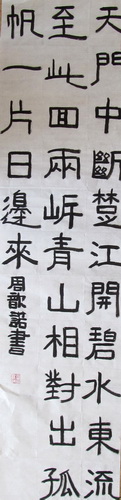 天門中斷楚江開碧水東流
至此回兩岸青山相對出孤
帆一片日邊來
周歆諾書